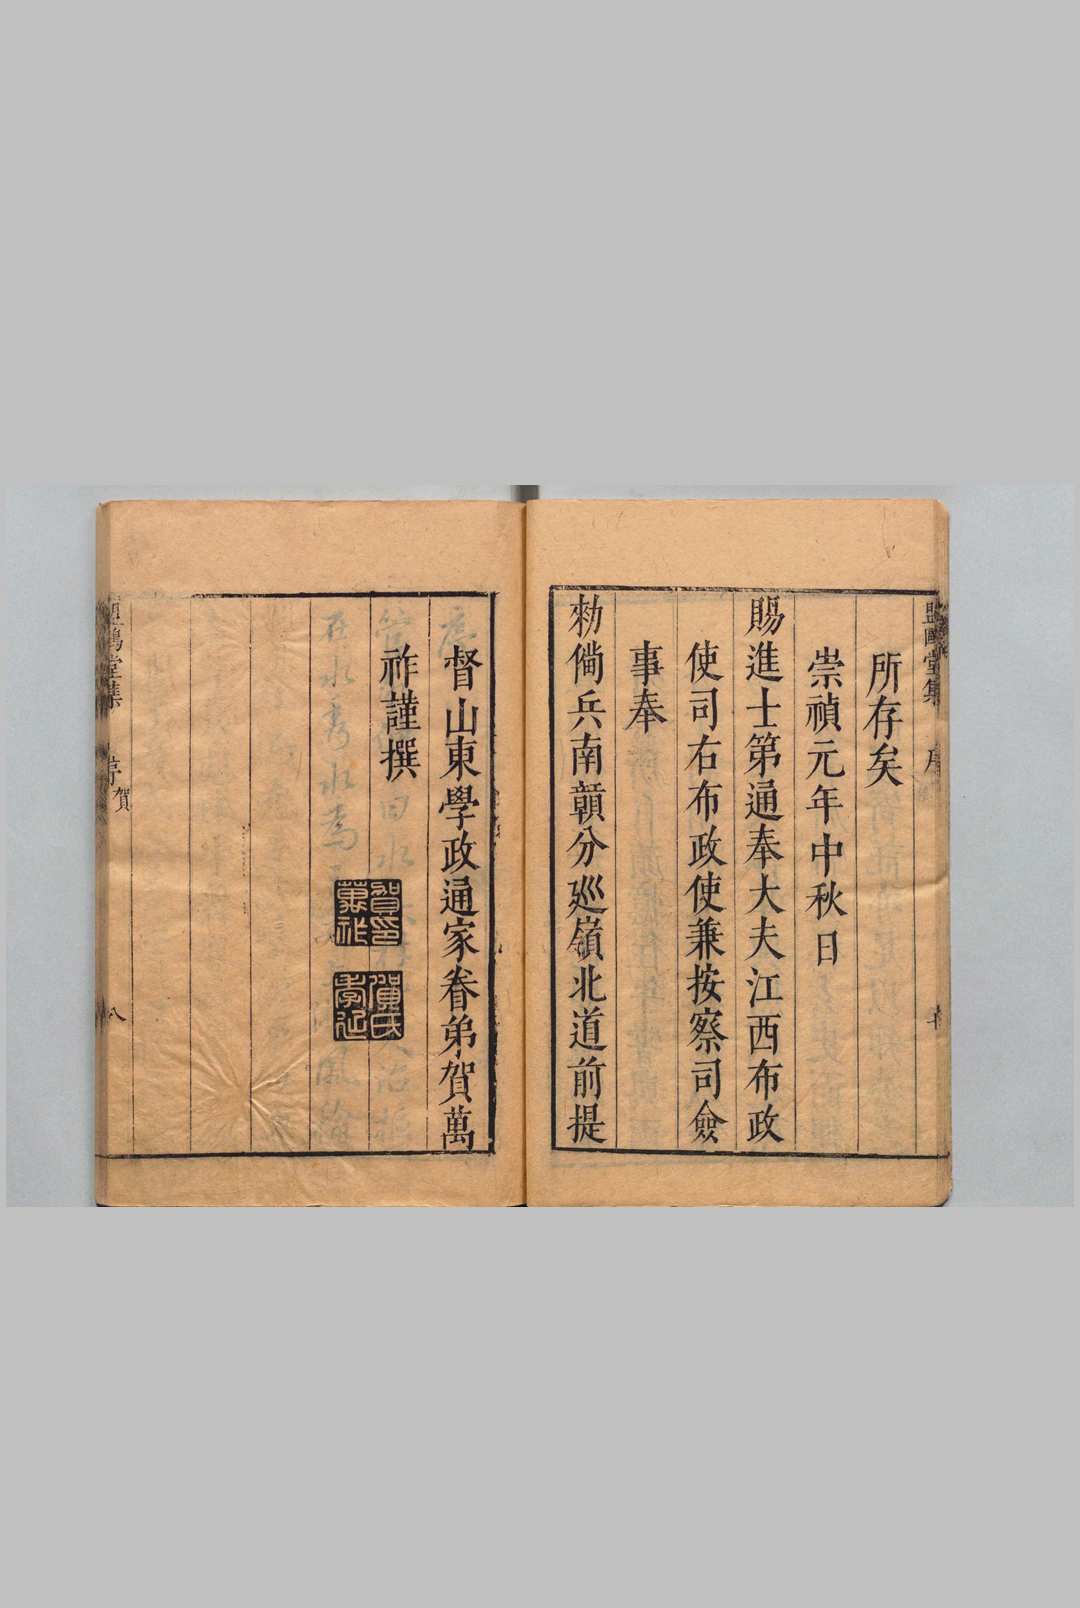 所存矣
崇禎元年中秋日
賜進士第通奉大夫江西布政
使司右布政使兼按察司僉
事奉
勑俻兵南贛分廵嶺北道前提
督山東學政通家眷弟賀萬
祚謹撰
賀印萬祚
賀氏
盟鷗堂集 序 賀 八